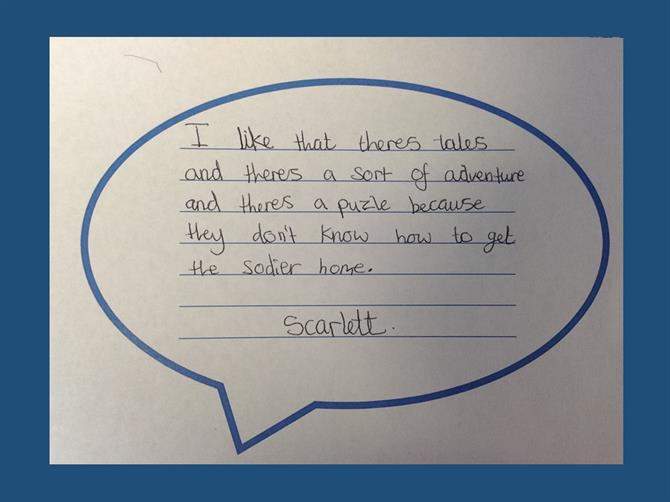 I like that theres tales
and theres a sort of adventure
and theres a puzle because
they don't know how to get
the sodier home.
Scarlett.